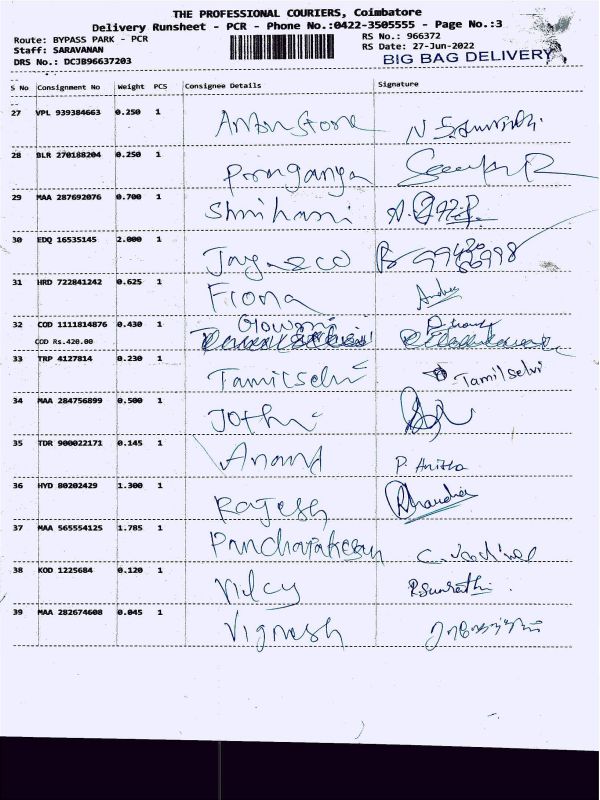 THE PROFESSIONAL COURIERS, Coimbatore
Delivery Runsheet - PCR - Phone No.:0422-3505555 - Page No.:3
Route: BYPASS PARK - PCR RS No.: 966372
Staff: SARAVANAN RS Date: 27-Jun-2022
DRS No.: DCJB96637203 BIG BAG DELIVERY
S No Consignment No Weight PCS Consignee Details Signature
27 VPL 939384663 0.250 1 Anton Stone
28 BLR 270188204 0.250 1
29 MAA 287692076 0.700 1
30 EDQ 16535145 2.000 1
31 HRD 722841242 0.625 1 Fiona
32 COD 1111814876 0.430 1 Gowsmi
COD Rs.420.00
33 TRP 4127814 0.230 1 Tamilselvi Tamilselvi
34 MAA 284756899 0.500 1 Jothi
35 TDR 900022171 0.145 1 Anand P. Anitha
36 HYD 80202429 1.300 1 Rajesh
37 MAA 565554125 1.785 1
38 KOD 1225684 0.120 1
39 MAA 282674608 0.045 1 Vignesh